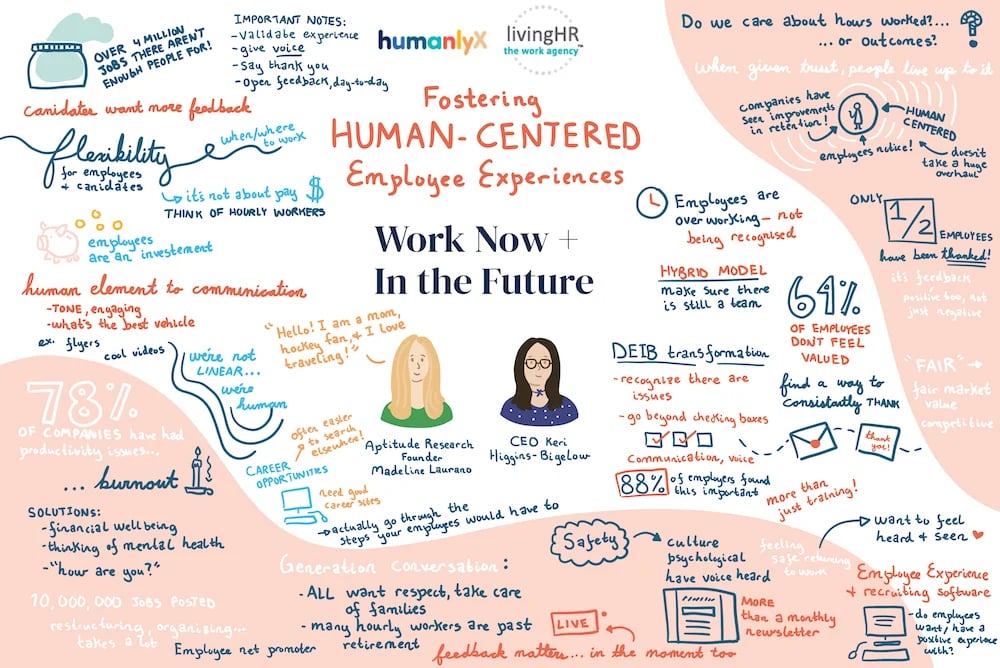 OVER 4 MILLION
JOBS THERE AREN'T
ENOUGH PEOPLE FOR!
IMPORTANT NOTES:
- Validabe experience
- give voice
- Say thank you
- Open feedback, day-to-day
humanlyX
livingHR
the work agency™
Fostering
HUMAN-CENTERED
Employee Experiences
Work Now +
In the Future
Do we care about hours worked?...
... or outcomes?
When given trust, people live up to it
COMPANIES HAVE
SEEN IMPROVEMENTS
IN RETENTION!
HUMAN
CENTERED
employees notice!
doesn't
take a huge
overhaul
candidates want more feedback
flexibility
for employees
& candidates
when/where
to work
it's not about pay $
THINK OF HOURLY WORKERS
employees
are an investement
human element to communication
- TONE, engaging
- what's the best vehicle
ex. flyers
cool videos
we're not
LINEAR...
we're
human
"Hello! I am a mom,
hockey fan, & I love
traveling!"
Aptitude Research
Founder
Madeline Laurano
CEO Keri
Higgins-Bigelow
Employees are
over working — not
being recognised
HYBRID MODEL
make sure there
is still a team
64%
OF EMPLOYEES
DON'T FEEL
VALUED
find a way to
consistantly THANK
ONLY
1/2
EMPLOYEES
have been thanked!
it's feedback
positive too, not
just negative
"FAIR" →
fair market
value
competitive
DEIB transformation
- recognize there are
issues
- go beyond checking boxes
Communication, voice
88% of employers found
this important
thank
you!
more than
just training!
78%
OF COMPANIES have had
productivity issues...
... burnout
SOLUTIONS:
- financial wellbeing
- thinking of mental health
- "how are you?"
10,000,000 JOBS POSTED
restructuring, organising...
takes a lot
Employee net promoter
often easier
to search
elsewhere!
CAREER
OPPORTUNITIES
need good
career sites
actually go through the
steps your employees would have to
Generation Conversation:
- ALL want respect, take care
of families
- many hourly workers are past
retirement
LIVE
feedback matters... in the moment too
Safety
culture
psychological
have voice heard
feeling
safe returning
to work
want to feel
heard & seen
MORE
than a monthly
newsletter
Employee Experience
& recruiting software
- do employees
want/have a
positive experience
with?